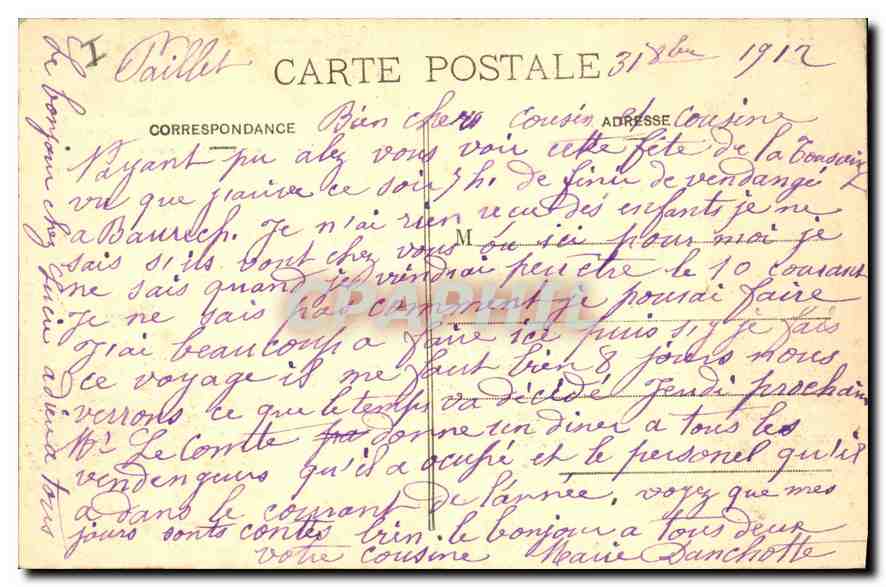 I Paillet CARTE POSTALE 31 8bre 1912
CORRESPONDANCE Bien chers cousin et cousine ADRESSE
N'ayant pu alez vous voir cette fête de la Tousain
vu que j'arive ce soir 7h. de finir de vendangé
a Baurech. Je n'ai rien recu des enfants je ne
sais s'ils vont chez vous ou ici pour moi je
M
ne sais quand je viendrai peu être le 10 courant
Je ne sais pas comment je pourai faire
CPARHIL
J'ai beaucoup a faire ici puis s'y je fais
ce voyage il me faut bien 8 jours nous
verrons ce que le temps va décidé Jeudi prochain
Mr Le Comte donne un diner a tous les
vendengeurs qu'il a ocupé et le personel qu'il
a dans le courant de l'année, voyez que mes
jours sont contés bien. le bonjour a tous deux
votre cousine Marie Danchotte
Le bonjour chez Lucien adieu a tous